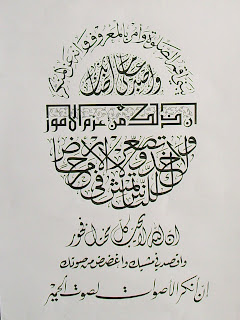 يا بني أقم الصلوة وأمر بالمعروف وانه عن المنكر
واصبر على ما أصابك
ان ذلك من عزم الامور
ولا تصعر خدك للناس ولا تمش في الارض مرحا
ان الله لا يحب كل مختال فخور
واقصد في مشيك واغضض من صوتك
إن أنكر الأصوات لصوت الحمير